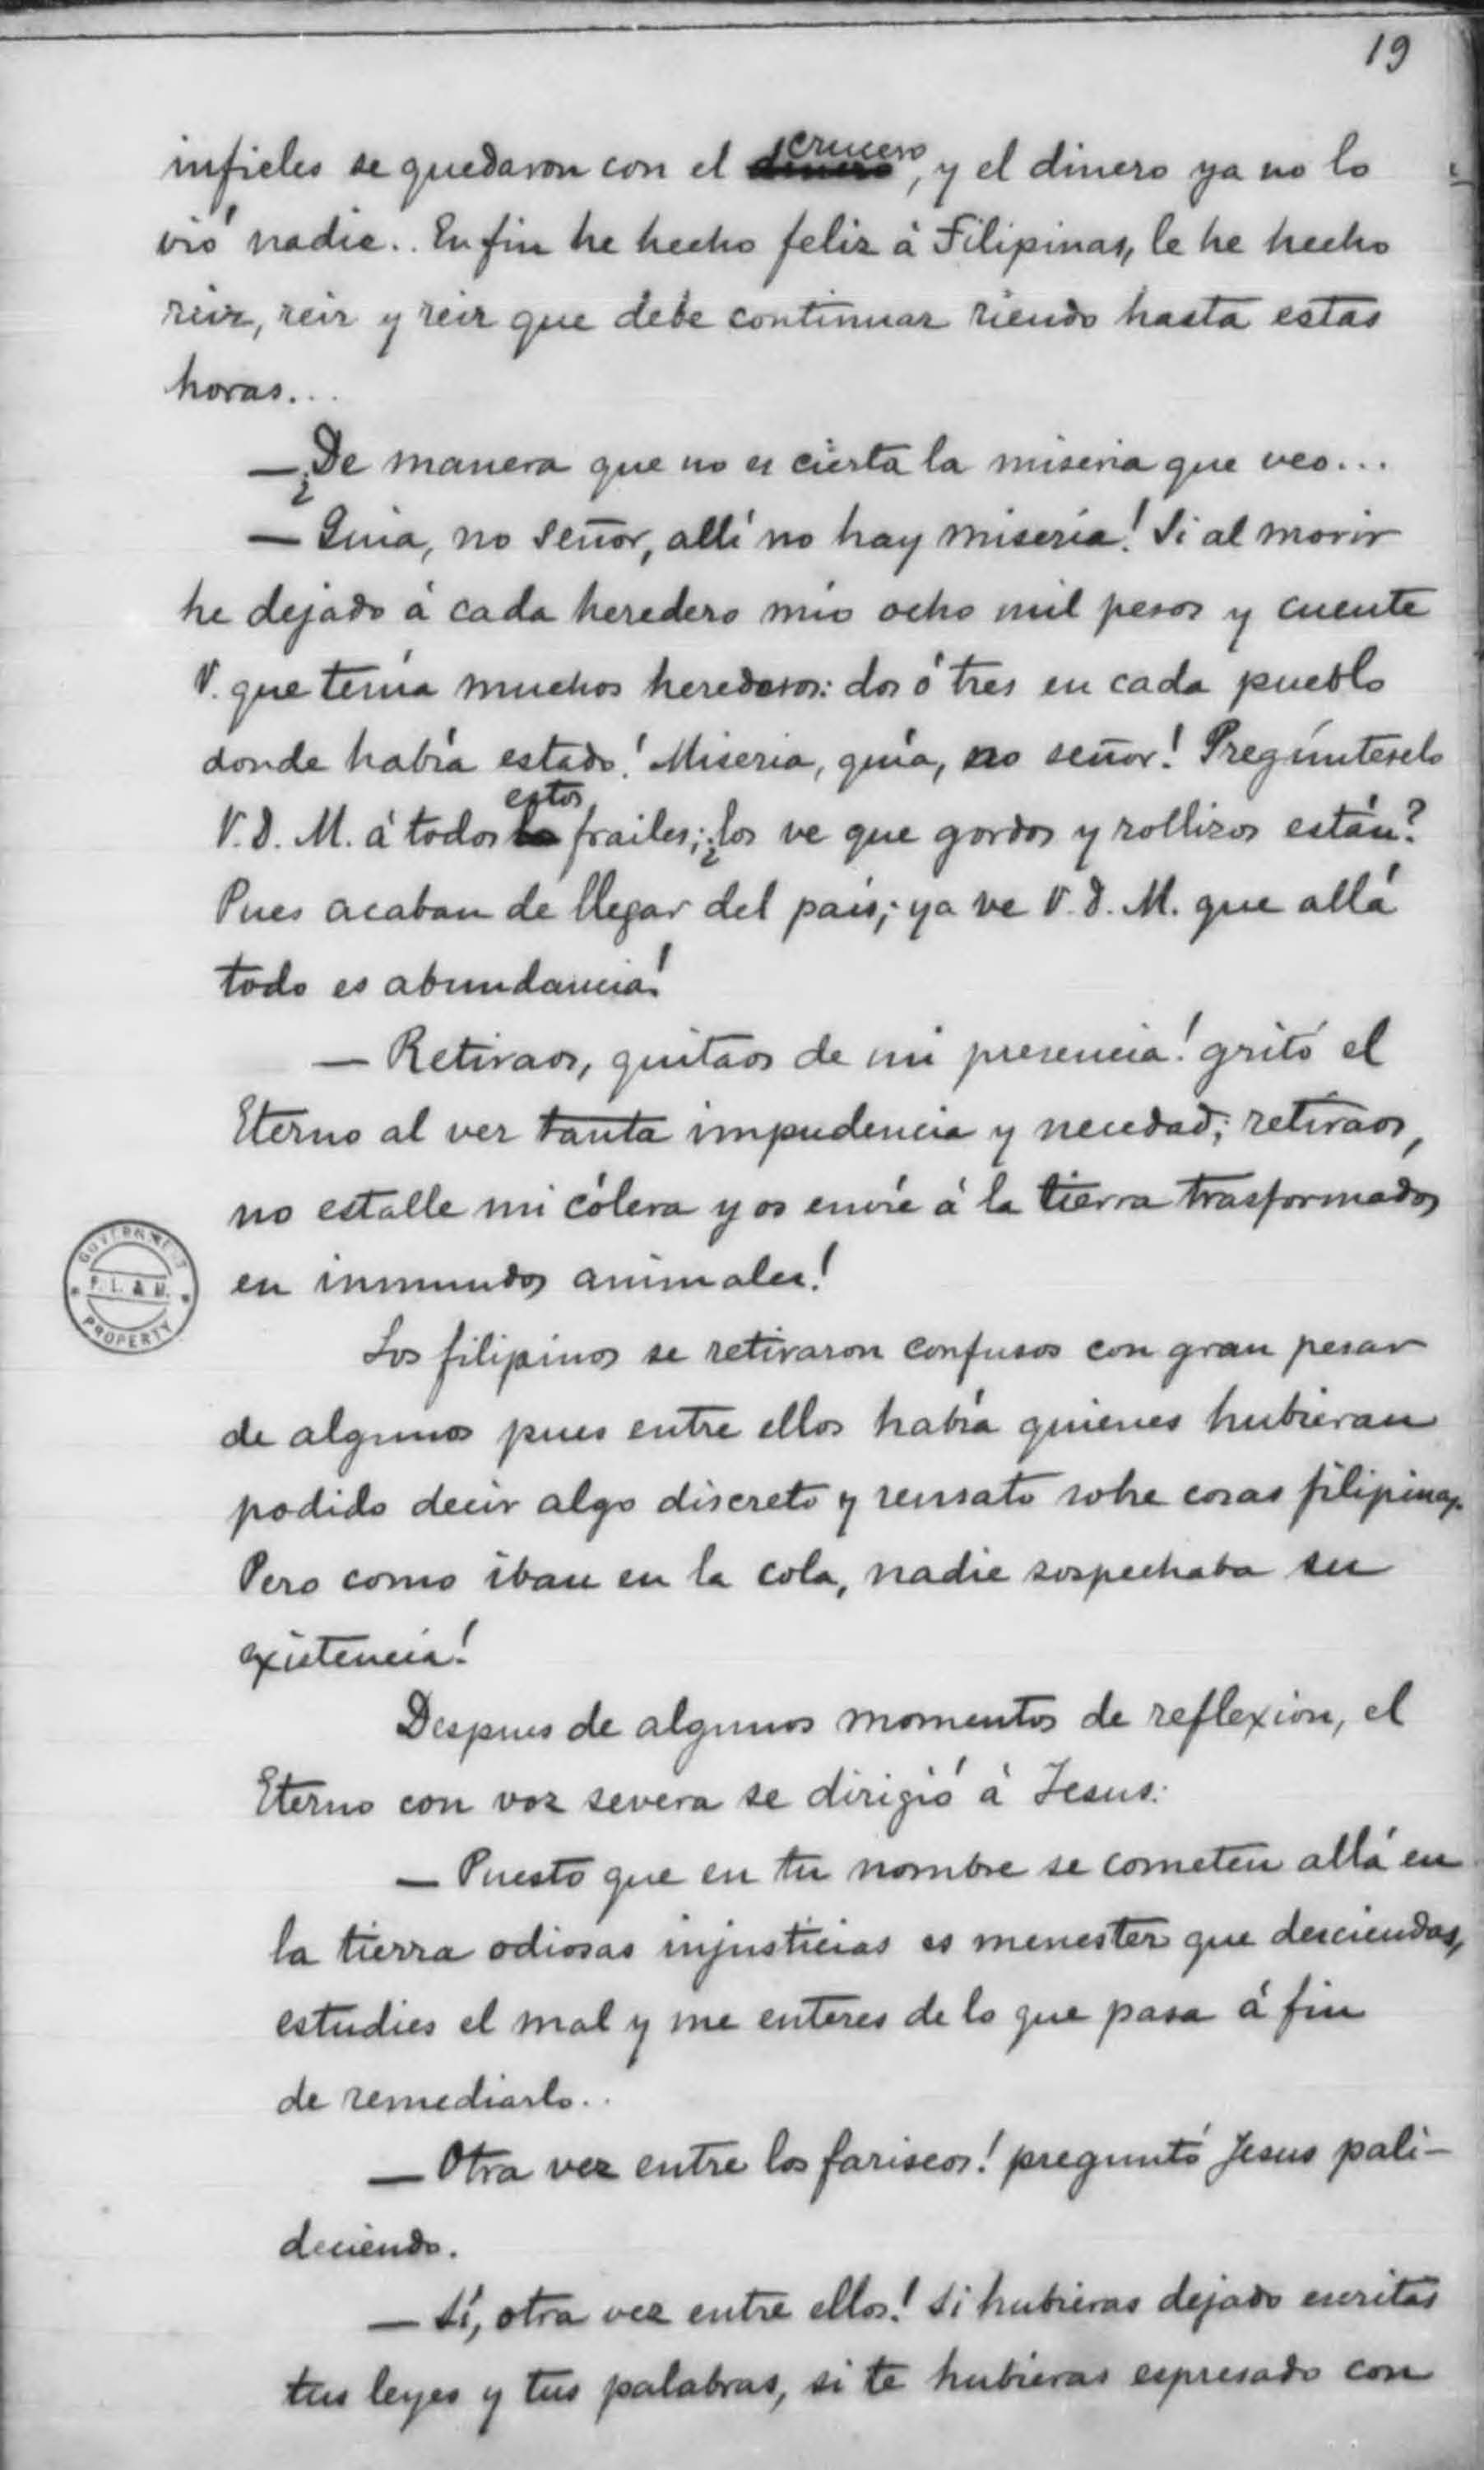 19
infieles se quedaron con el dinero crucero, y el dinero ya no lo
vió nadie.. En fin he hecho feliz á Filipinas, le he hecho
reir, reir y reir que debe continuar riendo hasta estas
horas...
— ¿De manera que no es cierta la miseria que veo...
— Quia, no Señor, allí no hay miseria! Si al morir
he dejado á cada heredero mio ocho mil pesos y cuente
V. que tenía muchos herederos: dos ó tres en cada pueblo
donde habría estado! Miseria, quía, no señor! Pregúnteselo
V. D. M. á todos estos frailes; ¿los ve que gordos y rollizos están?
Pues acaban de llegar del pais; ya ve V. D. M. que allá
todo es abundancia!
— Retiraos, quitaos de mi presencia! gritó el
Eterno al ver tanta impudencia y necedad; retiraos,
no estalle mi cólera y os envíe á la tierra trasformados
en inmundos animales!
Los filipinos se retiraron confusos con gran pesar
de algunos pues entre ellos había quienes hubieran
podido decir algo discreto y sensato sobre cosas filipinas.
Pero como iban en la cola, nadie sospechaba su
existencia!
Despues de algunos momentos de reflexion, el
Eterno con voz severa se dirigió á Jesus:
— Puesto que en tu nombre se cometen allá en
la tierra odiosas injusticias es menester que desciendas,
estudies el mal y me enteres de lo que pasa á fin
de remediarlo..
— Otra vez entre los fariseos! preguntó Jesus pali-
deciendo.
— Sí, otra vez entre ellos! Si hubieras dejado escritas
tus leyes y tus palabras, si te hubieras espresado con
GOVERNMENT
P. L. & M.
PROPERTY